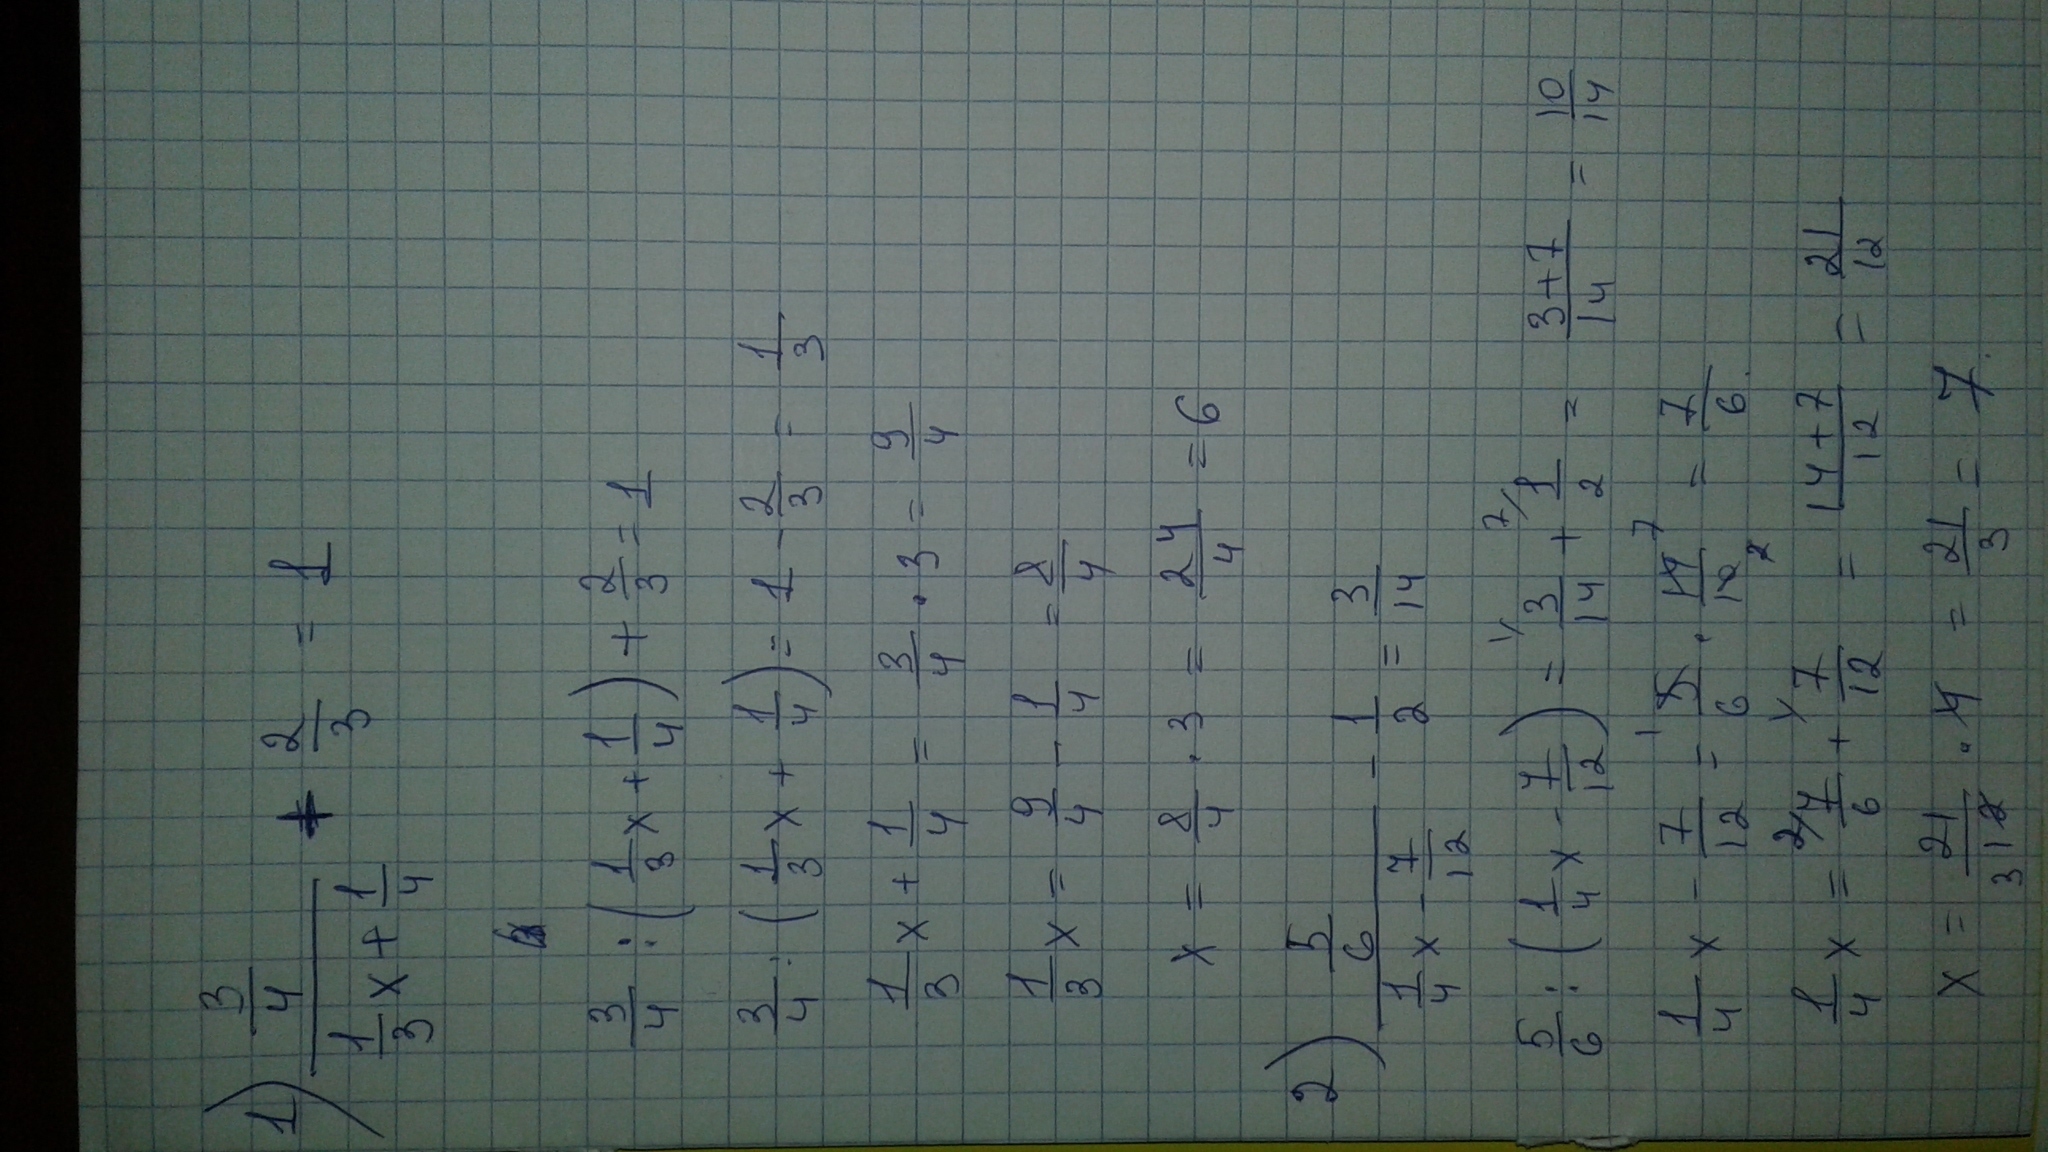 1) (3/4)/(1/3 x + 1/4) + 2/3 = 1
3/4 : (1/3 x + 1/4) + 2/3 = 1
3/4 : (1/3 x + 1/4) = 1 - 2/3 = 1/3
1/3 x + 1/4 = 3/4 · 3 = 9/4
1/3 x = 9/4 - 1/4 = 8/4
x = 8/4 · 3 = 24/4 = 6
2) (5/6)/(1/4 x - 7/12) - 1/2 = 3/14
5/6 : (1/4 x - 7/12) = 1/ 3/14 + 7/ 1/2 = (3+7)/14 = 10/14
1/4 x - 7/12 = 1 5/6 · 14/10 7 2 = 7/6
1/4 x = 2/ 7/6 + 1/ 7/12 = (14+7)/12 = 21/12
x = 21/12 3 · 4 = 21/3 = 7.